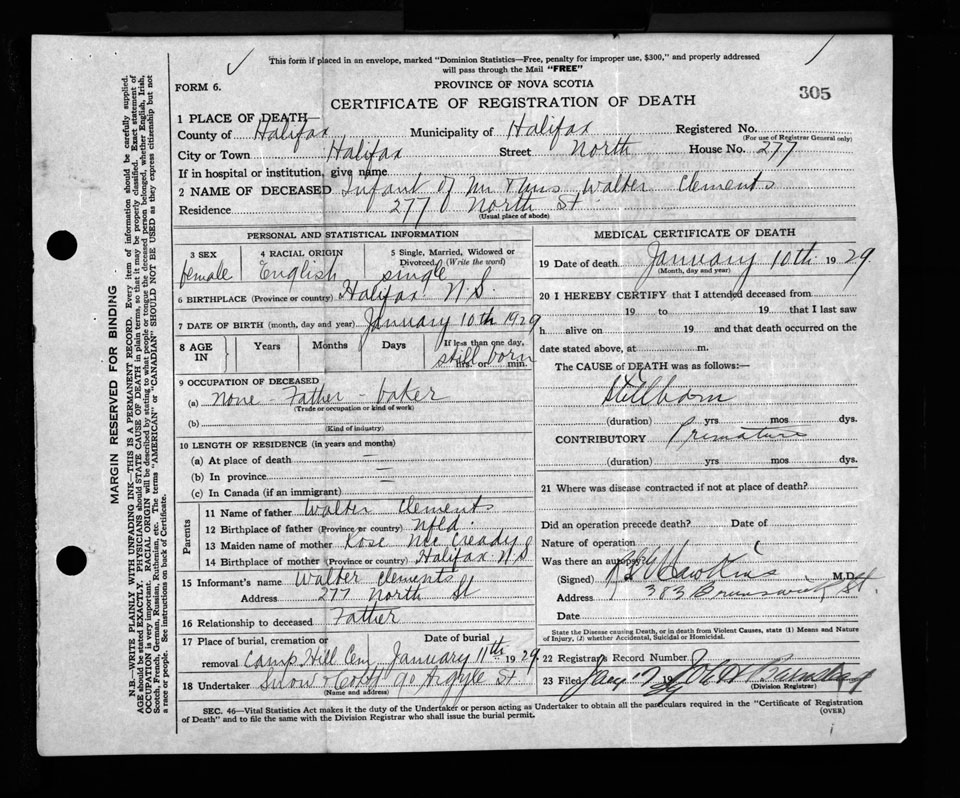 This form if placed in an envelope, marked "Dominion Statistics—Free, penalty for improper use, $300," and properly addressed
will pass through the Mail "FREE"
FORM 6.
PROVINCE OF NOVA SCOTIA
CERTIFICATE OF REGISTRATION OF DEATH
305
1 PLACE OF DEATH—
County of Halifax Municipality of Halifax Registered No.
(For use of Registrar General only)
City or Town Halifax Street North House No. 277
If in hospital or institution, give name
2 NAME OF DECEASED Infant of Mr & Mrs Walter Clements
Residence 277 North St.
(Usual place of abode)
PERSONAL AND STATISTICAL INFORMATION
3 SEX female
4 RACIAL ORIGIN English
5 Single, Married, Widowed or Divorced (Write the word) single
6 BIRTHPLACE (Province or country) Halifax N.S.
7 DATE OF BIRTH (month, day and year) January 10th 1929
8 AGE IN Years Months Days If less than one day, hrs. or min. still born
9 OCCUPATION OF DECEASED
(a) none - Father - baker
(Trade or occupation or kind of work)
(b)
(Kind of industry)
10 LENGTH OF RESIDENCE (in years and months)
(a) At place of death —
(b) In province —
(c) In Canada (if an immigrant)
Parents
11 Name of father Walter Clements
12 Birthplace of father (Province or country) Nfld.
13 Maiden name of mother Rose McCready
14 Birthplace of mother (Province or country) Halifax N.S
15 Informant's name Walter Clements
Address 277 North St
16 Relationship to deceased Father
17 Place of burial, cremation or removal Camp Hill Cem Date of burial January 11th 1929
18 Undertaker Snow & Co 90 Argyle St
(Name and address)
MEDICAL CERTIFICATE OF DEATH
19 Date of death January 10th 1929.
(Month, day and year)
20 I HEREBY CERTIFY that I attended deceased from
19 to 19 that I last saw
h alive on 19 and that death occurred on the
date stated above, at m.
The CAUSE of DEATH was as follows:—
Stillborn
(duration) yrs mos dys.
CONTRIBUTORY Premature
(duration) yrs mos dys.
21 Where was disease contracted if not at place of death?
Did an operation precede death? Date of
Nature of operation
Was there an autopsy?
(Signed) Hawkins M.D.
Address 383 Brunswick St
Date
State the Disease causing Death, or in death from Violent Causes, state (1) Means and Nature
of Injury, (2) whether Accidental, Suicidal or Homicidal.
22 Registrar's Record Number
23 Filed 19
(Division Registrar)
SEC. 46—Vital Statistics Act makes it the duty of the Undertaker or person acting as Undertaker to obtain all the particulars required in the "Certificate of Registration
of Death" and to file the same with the Division Registrar who shall issue the burial permit.
(OVER)
MARGIN RESERVED FOR BINDING
N.B.—WRITE PLAINLY WITH UNFADING INK—THIS IS A PERMANENT RECORD. Every item of information should be carefully supplied.
AGE should be stated EXACTLY. PHYSICIANS should STATE CAUSE OF DEATH in plain terms, so that it may be properly classified. Exact statement of
OCCUPATION is very important. RACIAL ORIGIN will be described by stating to what people or tongue the deceased person belonged, whether English, Irish,
Scotch, French, German, Russian, Ruthenian, etc. The terms "AMERICAN" or "CANADIAN" SHOULD NOT BE USED as they express citizenship but not
a race or people. See instructions on back of Certificate.